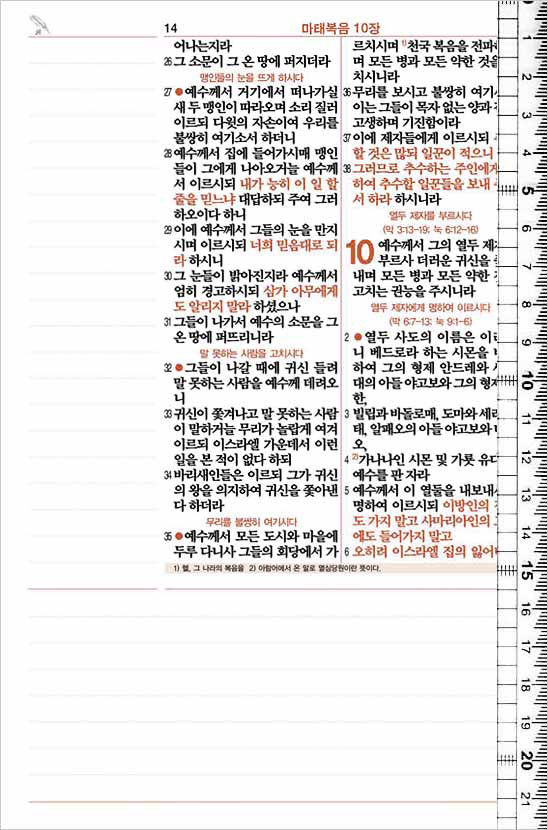 14
마태복음 10장
어나는지라
26 그 소문이 그 온 땅에 퍼지더라
맹인들의 눈을 뜨게 하시다
27 ● 예수께서 거기에서 떠나가실
새 두 맹인이 따라오며 소리 질러
이르되 다윗의 자손이여 우리를
불쌍히 여기소서 하더니
28 예수께서 집에 들어가시매 맹인
들이 그에게 나아오거늘 예수께
서 이르시되 내가 능히 이 일 할
줄을 믿느냐 대답하되 주여 그러
하오이다 하니
29 이에 예수께서 그들의 눈을 만지
시며 이르시되 너희 믿음대로 되
라 하시니
30 그 눈들이 밝아진지라 예수께서
엄히 경고하시되 삼가 아무에게
도 알리지 말라 하셨으나
31 그들이 나가서 예수의 소문을 그
온 땅에 퍼뜨리니라
말 못하는 사람을 고치시다
32 ● 그들이 나갈 때에 귀신 들려
말 못하는 사람을 예수께 데려오
니
33 귀신이 쫓겨나고 말 못하는 사람
이 말하거늘 무리가 놀랍게 여겨
이르되 이스라엘 가운데서 이런
일을 본 적이 없다 하되
34 바리새인들은 이르되 그가 귀신
의 왕을 의지하여 귀신을 쫓아낸
다 하더라
무리를 불쌍히 여기시다
35 ● 예수께서 모든 도시와 마을에
두루 다니사 그들의 회당에서 가
르치시며 1)천국 복음을 전파
며 모든 병과 모든 약한 것을
치시니라
36 무리를 보시고 불쌍히 여기
이는 그들이 목자 없는 양과
고생하며 기진함이라
37 이에 제자들에게 이르시되
할 것은 많되 일꾼이 적으니
38 그러므로 추수하는 주인에게
하여 추수할 일꾼들을 보내
서 하라 하시니라
열두 제자를 부르시다
(막 3:13-19; 눅 6:12-16)
10 예수께서 그의 열두 제
부르사 더러운 귀신을
내며 모든 병과 모든 약한
고치는 권능을 주시니라
열두 제자에게 명하여 이르시다
(막 6:7-13; 눅 9:1-6)
2 ● 열두 사도의 이름은 이
니 베드로라 하는 시몬을
하여 그의 형제 안드레와
대의 아들 야고보와 그의 형
한,
3 빌립과 바돌로매, 도마와 세
태, 알패오의 아들 야고보와
오,
4 2)가나나인 시몬 및 가룟 유다
예수를 판 자라
5 예수께서 이 열둘을 내보내
명하여 이르시되 이방인의
도 가지 말고 사마리아인의
에도 들어가지 말고
6 오히려 이스라엘 집의 잃어
1) 헬, 그 나라의 복음을 2) 아람어에서 온 말로 열심당원이란 뜻이다.
1
2
3
4
5
6
7
8
9
10
11
12
13
14
15
16
17
18
19
20
21